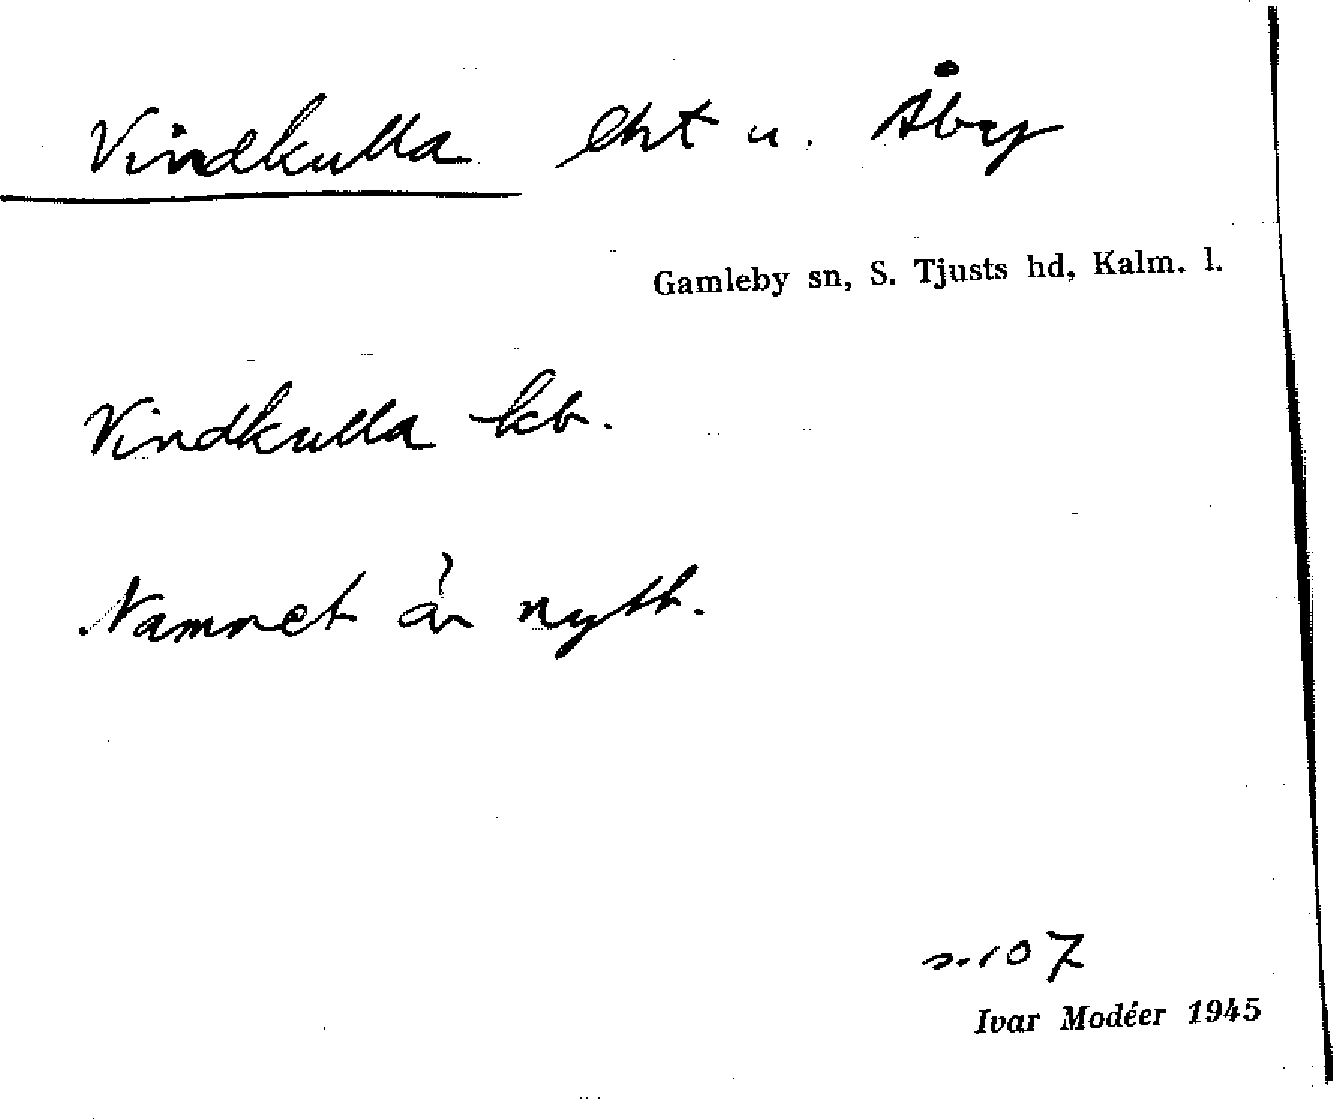 Vindkulla lht u. Åby
Gamleby sn, S. Tjusts hd, Kalm. l.
Vindkulla kb.
Namnet är nytt.
s. 107
Ivar Modéer 1945